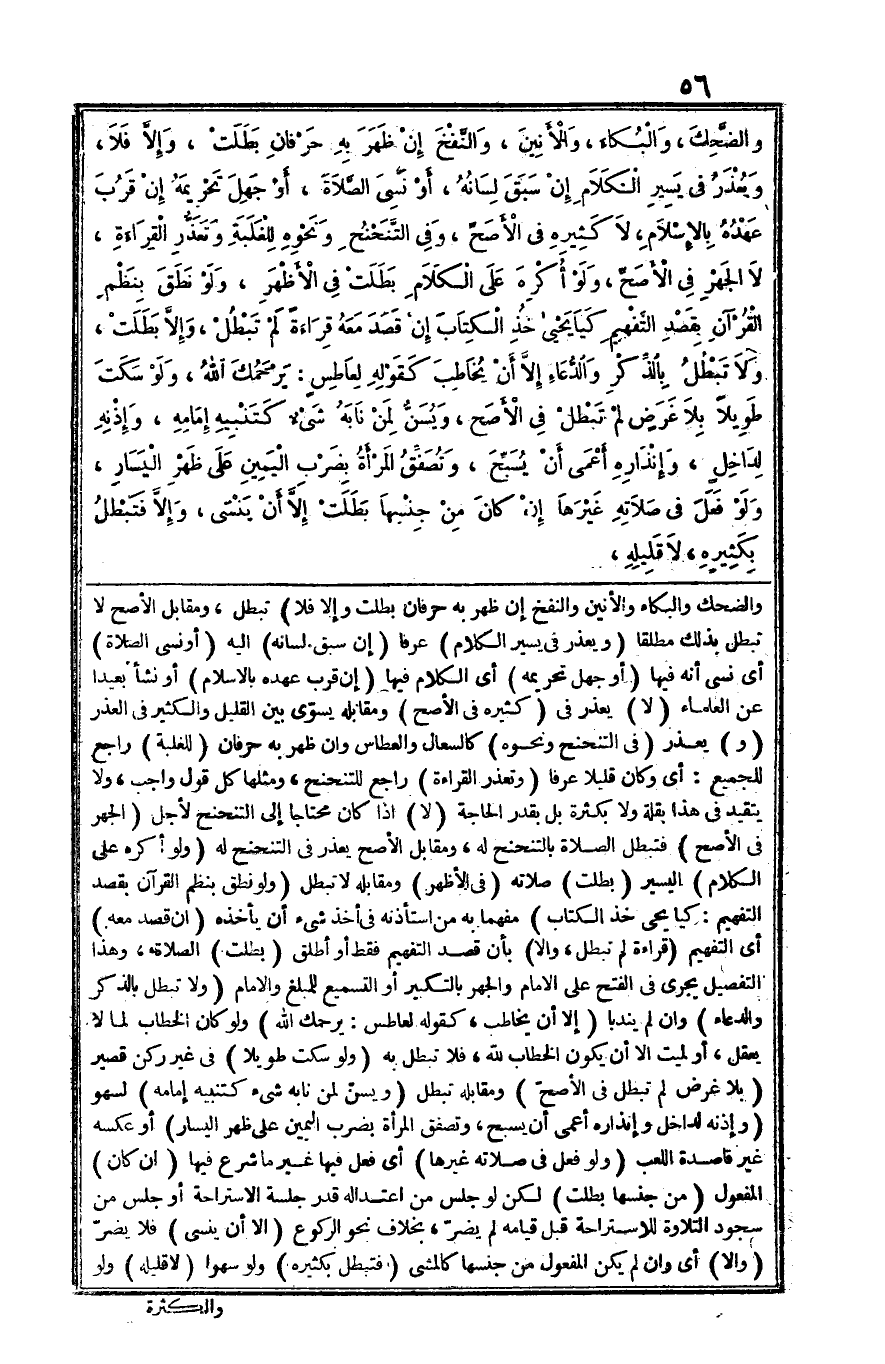 ٥٦
والضَّحِكَ ، وَالْبُكاءَ ، وَالْأَنِينَ ، وَالنَّفْخَ إِنْ ظَهَرَ بِهِ حَرْفانِ بَطَلَتْ ، وَإِلَّا فَلَا ،
وَيُعْذَرُ فى يَسِيرِ الْكَلَامِ إِنْ سَبَقَ لِسَانُهُ ، أَوْ نَسِىَ الصَّلَاةَ ، أَوْ جَهِلَ تَحْرِيمَهُ إِنْ قَرُبَ
عَهْدُهُ بِالإِسْلَامِ، لَا كَثِيرِهِ فى الْأَصَحِّ ، وَفِى التَّنَحْنُحِ وَنَحْوِهِ لِلْغَلَبَةِ وَتَعَذُّرِ الْقِرَاءَةِ ،
لَا الجَهْرِ فِى الْأَصَحِّ ، وَلَوْ أُكْرِهَ عَلَى الْكَلَامِ بَطَلَتْ فِى الْأَظْهَرِ ، وَلَوْ نَطَقَ بِنَظْمِ
القُرْآنِ بِقَصْدِ التَّفْهِيمِ كَيَايَحْيىٰ خُذِ الْكِتَابَ إِنْ قَصَدَ مَعَهُ قِرَاءَةً لَمْ تَبْطُلْ ، وَإِلَّا بَطَلَتْ ،
وَلَا تَبْطُلُ بِالذِّكْرِ وَالدُّعَاءِ إِلَّا أَنْ يُخَاطِبَ كَقَوْلِهِ لِعَاطِسٍ : يَرْحَمُكَ اللهُ ، وَلَوْ سَكَتَ
طَوِيلًا بِلَا غَرَضٍ لَمْ تَبْطُلْ فِى الْأَصَحِّ ، وَيُسَنُّ لِمَنْ نَابَهُ شَىْءٌ كَتَنْبِيهِ إِمَامِهِ ، وَإِذْنِهِ
لِدَاخِلٍ ، وَإِنْذَارِهِ أَعْمَى أَنْ يُسَبِّحَ ، وَتُصَفِّقُ المَرْأَةُ بِضَرْبِ الْيَمِينِ عَلَى ظَهْرِ الْيَسَارِ ،
وَلَوْ فَعَلَ فى صَلَاتِهِ غَيْرَهَا إِنْ كَانَ مِنْ جِنْسِهَا بَطَلَتْ إِلَّا أَنْ يَنْسَى ، وَإِلَّا فَتَبْطُلُ
بِكَثِيرِهِ ، لَا قَلِيلِهِ ،
والضحك والبكاء والأنين والنفخ إن ظهر به حرفان بطلت وإلا فلا ) تبطل ، ومقابل الأصح لا
تبطل بذلك مطلقا ( ويعذر فى يسير الكلام ) عرفا ( إن سبق لسانه ) اليه ( أونسى الصلاة )
أى نسى أنه فيها ( أو جهل تحريمه ) أى الكلام فيها ( إن قرب عهده بالاسلام ) أو نشأ بعيدا
عن العلماء ( لا ) يعذر فى ( كثيره فى الأصح ) ومقابله يسوّى بين القليل والكثير فى العذر
( و ) يعذر ( فى التنحنح ونحوه ) كالسعال والعطاس وان ظهر به حرفان ( للغلبة ) راجع
للجميع : أى وكان قليلا عرفا ( وتعذر القراءة ) راجع للتنحنح ، ومثلها كل قول واجب ، ولا
يتقيد فى هذا بقلة ولا بكثرة بل بقدر الحاجة ( لا ) اذا كان محتاجا إلى التنحنح لأجل ( الجهر
فى الأصح ) فتبطل الصلاة بالتنحنح له ، ومقابل الأصح يعذر فى التنحنح له ( ولو أكره على
الكلام ) اليسير ( بطلت ) صلاته ( فى الأظهر ) ومقابله لا تبطل ( ولو نطق بنظم القرآن بقصد
التفهيم : كيا يحيى خذ الكتاب ) مفهما به من استأذنه فى أخذ شىء أن يأخذه ( ان قصد معه )
أى التفهيم ( قراءة لم تبطل ، والا ) بأن قصد التفهيم فقط أو أطلق ( بطلت ) الصلاة ، وهذا
التفصيل يجرى فى الفتح على الامام والجهر بالتكبير أو التسميع للمبلغ والامام ( ولا تبطل بالذكر
والدعاء ) وان لم يندبا ( إلا أن يخاطب ، كقوله لعاطس : يرحمك الله ) ولو كان الخطاب لما لا
يعقل ، أو لميت الا أن يكون الخطاب لله ، فلا تبطل به ( ولو سكت طويلا ) فى غير ركن قصير
( بلا غرض لم تبطل فى الأصحّ ) ومقابله تبطل ( ويسنّ لمن نابه شىء كتنبيه إمامه ) لسهو
( وإذنه لداخل وإنذاره أعمى أن يسبح ، وتصفق المرأة بضرب اليمين على ظهر اليسار ) أو عكسه
غير قاصدة اللعب ( ولو فعل فى صلاته غيرها ) أى فعل فيها غير ما شرع فيها ( ان كان )
المفعول ( من جنسها بطلت ) لكن لو جلس من اعتداله قدر جلسة الاستراحة أو جلس من
سجود التلاوة للاستراحة قبل قيامه لم يضرّ ، بخلاف نحو الركوع ( الا أن ينسى ) فلا يضرّ
( والا ) أى وان لم يكن المفعول من جنسها كالمشى ( فتبطل بكثيره ) ولو سهوا ( لا قليله ) ولو
والكثرة